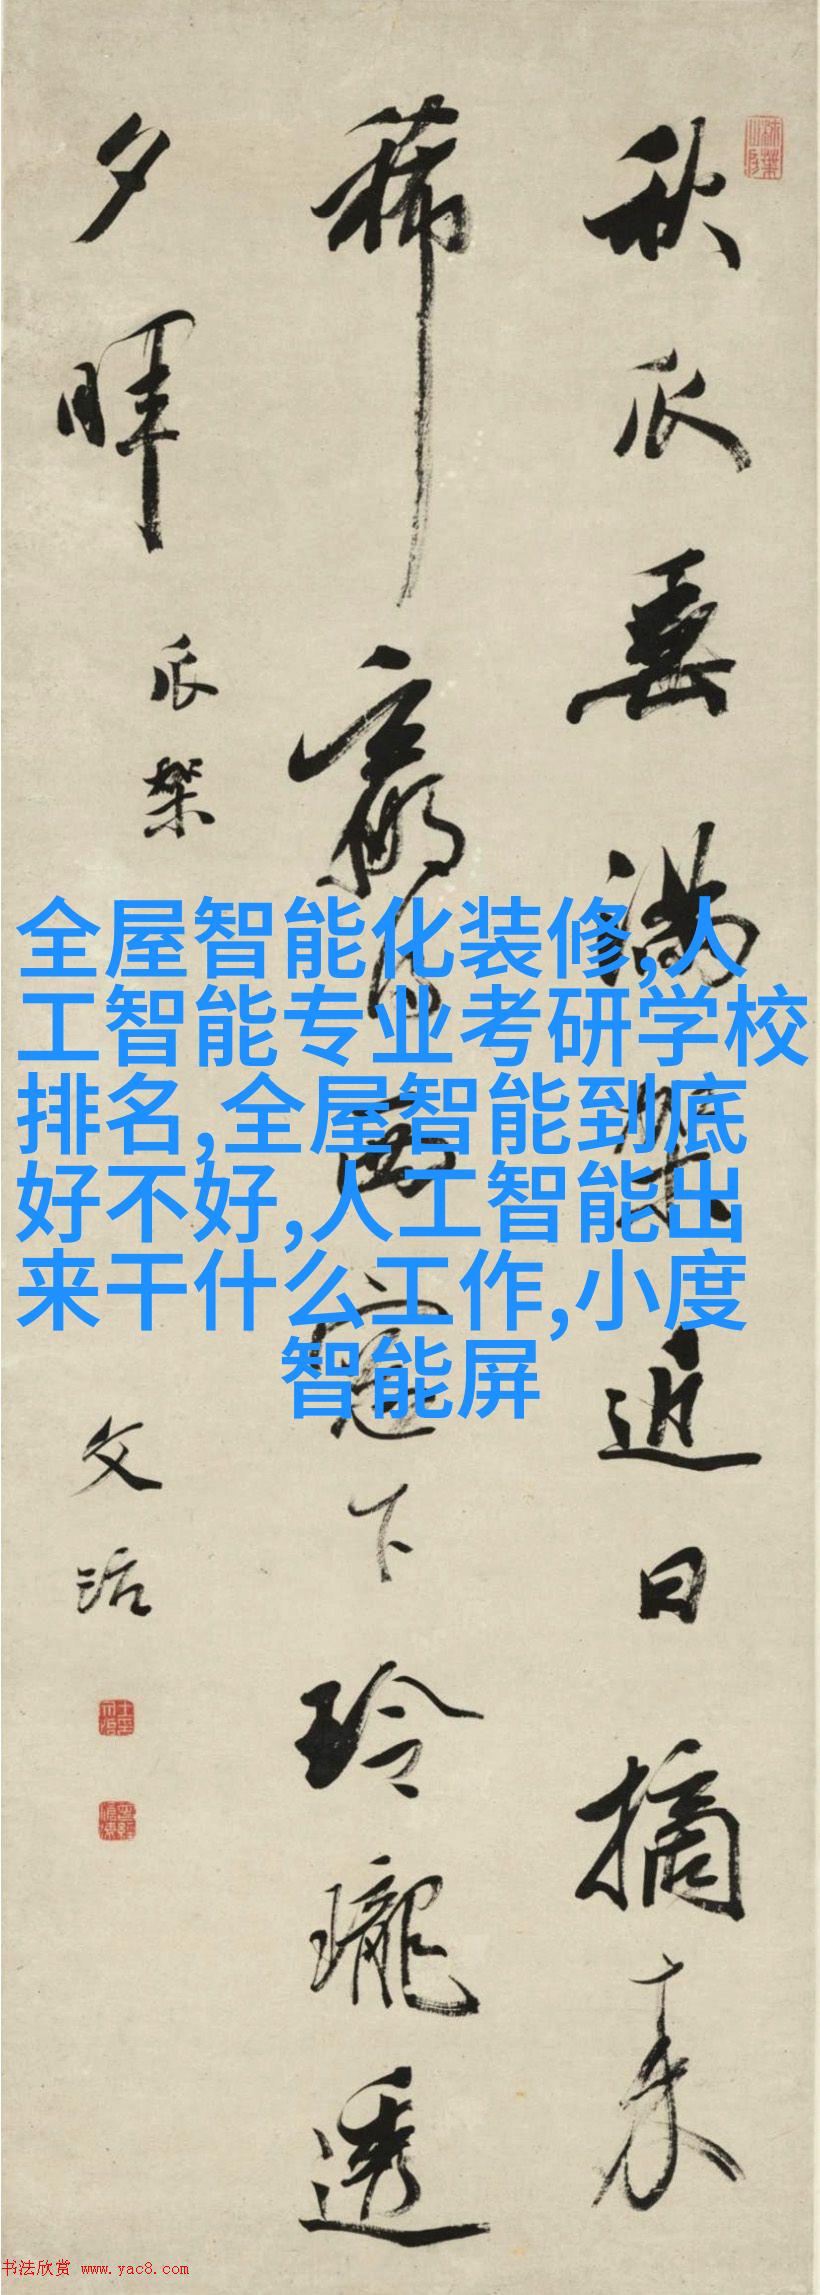 秋瓜垂满架近日摘来
稀赢得西窗下玲珑透
夕晖
瓜架
文治
全屋智能化装修,人
工智能专业考研学校
排名,全屋智能到底
好不好,人工智能出
来干什么工作,小度
智能屏
书法欣赏 www.yac8.com